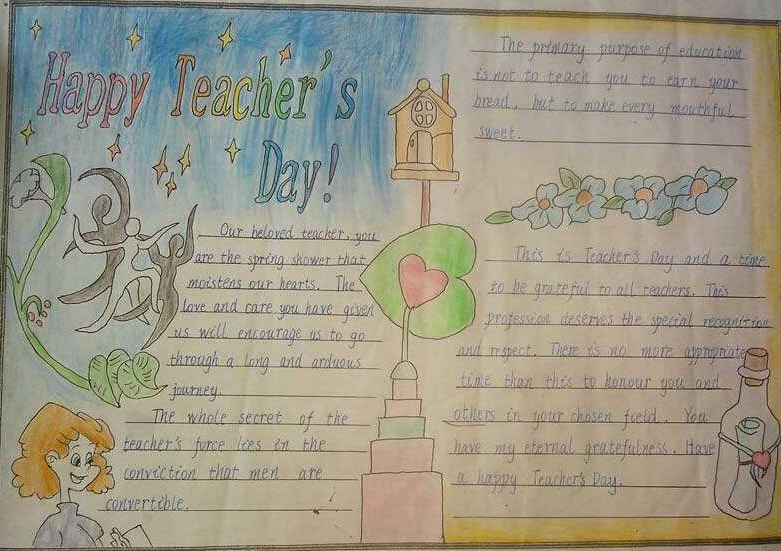 Happy Teacher's
Day!
Our beloved teacher, you
are the spring shower that
moistens our hearts. The
love and care you have given
us will encourage us to go
through a long and arduous
journey.
The whole secret of the
teacher's force lies in the
conviction that men are
convertible.
The primary purpose of education
is not to teach you to earn your
bread, but to make every mouthful
sweet.
This is Teacher's Day and a time
to be grateful to all teachers. This
profession deserves the special recognition
and respect. There is no more appropriate
time than this to honour you and
others in your chosen field. You
have my eternal gratefulness. Have
a happy Teacher's Day.